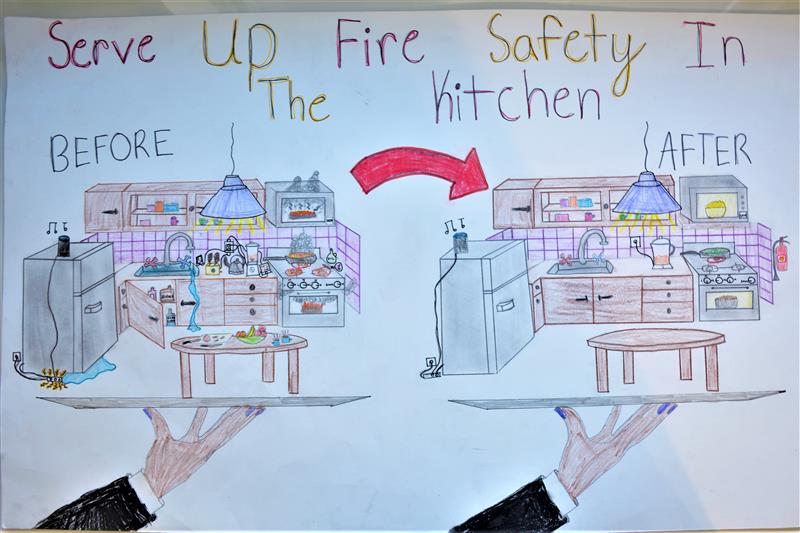 Serve Up Fire Safety In
The Kitchen
BEFORE
AFTER